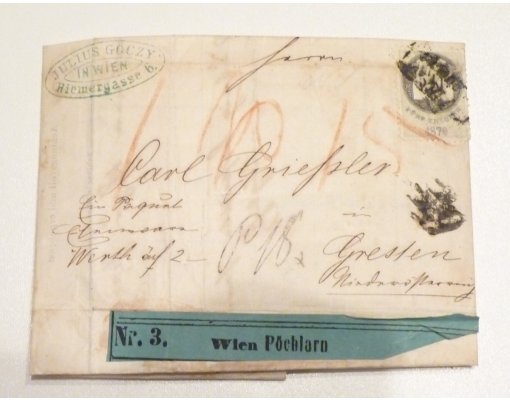 JULIUS GÓCZY
IN WIEN
Riemergasse 6.
Herrn
1870
Carl Griessler
Ein Paquet
in
Werth äf 2-
Gresten
Niederösterreich
Nr. 3. Wien Pöchlarn